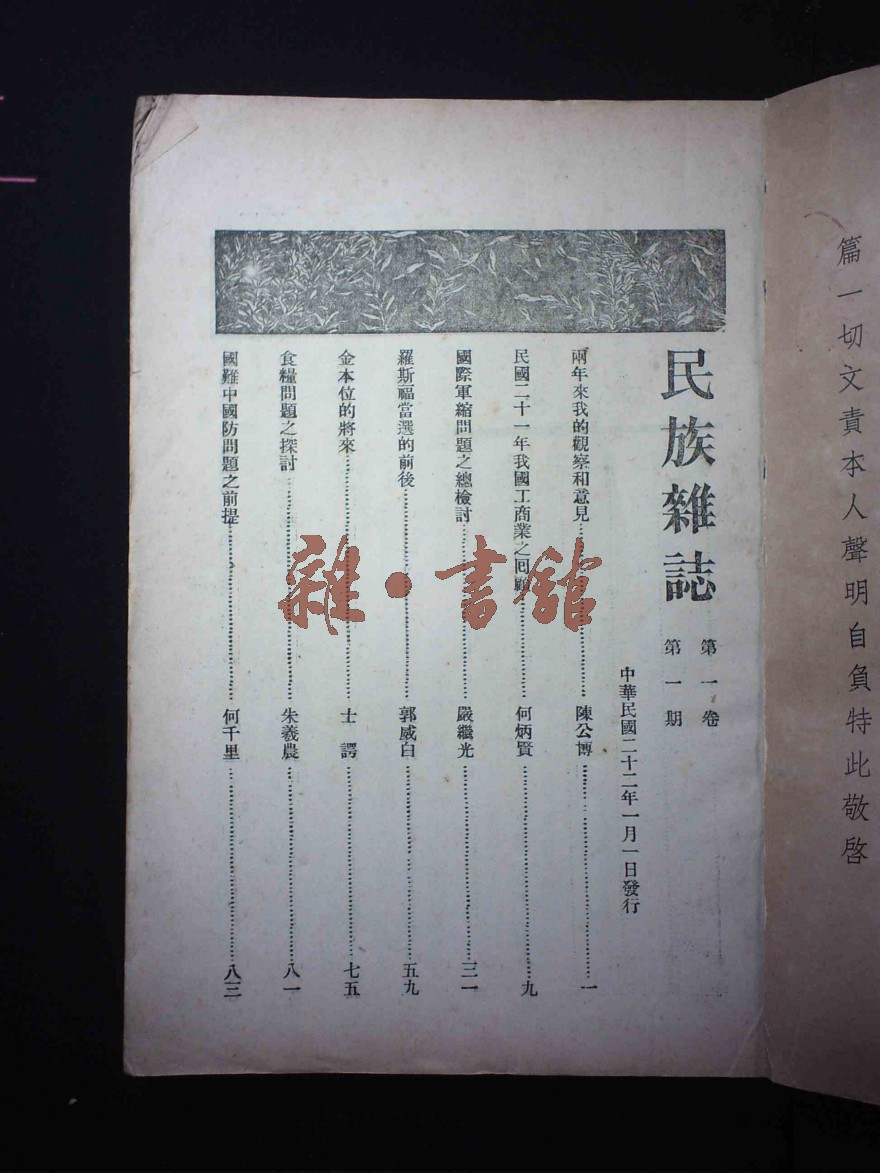 篇一切文責本人聲明自負特此敬啓
民族雜誌
第一卷
第一期
中華民國二十二年一月一日發行
兩年來我的觀察和意見……陳公博……一
民國二十一年我國工商業之回顧……何炳賢……九
國際軍縮問題之總檢討……嚴繼光……三一
羅斯福當選的前後……郭威白……五九
金本位的將來……士諤……七五
食糧問題之探討……朱羲農……八一
國難中國防問題之前提……何千里……八三
雜·書館